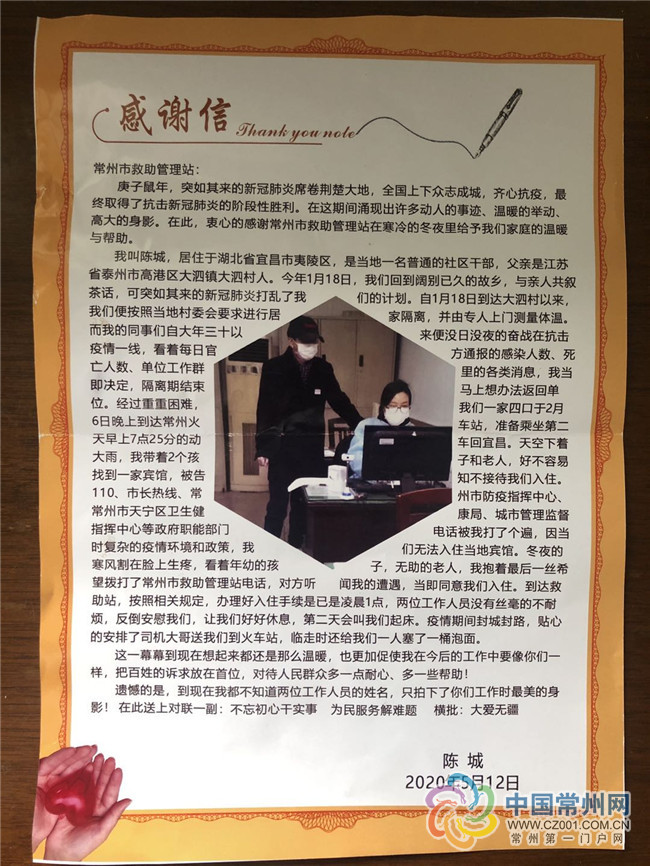 感谢信 Thank you note
常州市救助管理站：
庚子鼠年，突如其来的新冠肺炎席卷荆楚大地，全国上下众志成城，齐心抗疫，最
终取得了抗击新冠肺炎的阶段性胜利。在这期间涌现出许多动人的事迹、温暖的举动、
高大的身影。在此，衷心的感谢常州市救助管理站在寒冷的冬夜里给予我们家庭的温暖
与帮助。
我叫陈城，居住于湖北省宜昌市夷陵区，是当地一名普通的社区干部，父亲是江苏
省泰州市高港区大泗镇大泗村人。今年1月18日，我们回到阔别已久的故乡，与亲人共叙
茶话，可突如其来的新冠肺炎打乱了我们的计划。自1月18日到达大泗村以来，
我们便按照当地村委会要求进行居家隔离，并由专人上门测量体温。
而我的同事们自大年三十以来便没日没夜的奋战在抗击
疫情一线，看着每日官方通报的感染人数、死
亡人数、单位工作群里的各类消息，我当
即决定，隔离期结束马上想办法返回单
位。经过重重困难，我们一家四口于2月
6日晚上到达常州火车站，准备乘坐第二
天早上7点25分的动车回宜昌。天空下着
大雨，我带着2个孩子和老人，好不容易
找到一家宾馆，被告知不接待我们入住。
110、市长热线、常州市防疫指挥中心、
常州市天宁区卫生健康局、城市管理监督
指挥中心等政府职能部门电话被我打了个遍，因当
时复杂的疫情环境和政策，我们无法入住当地宾馆。冬夜的
寒风割在脸上生疼，看着年幼的孩子，无助的老人，我抱着最后一丝希
望拨打了常州市救助管理站电话，对方听闻我的遭遇，当即同意我们入住。到达救
助站，按照相关规定，办理好入住手续是已是凌晨1点，两位工作人员没有丝毫的不耐
烦，反倒安慰我们，让我们好好休息，第二天会叫我们起床。疫情期间封城封路，贴心
的安排了司机大哥送我们到火车站，临走时还给我们一人塞了一桶泡面。
这一幕幕到现在想起来都还是那么温暖，也更加促使我在今后的工作中要像你们一
样，把百姓的诉求放在首位，对待人民群众多一点耐心、多一些帮助！
遗憾的是，到现在我都不知道两位工作人员的姓名，只拍下了你们工作时最美的身
影！ 在此送上对联一副：不忘初心干实事 为民服务解难题 横批：大爱无疆
陈 城
2020年5月12日
中国常州网
WWW.CZ001.COM.CN
常州第一门户网